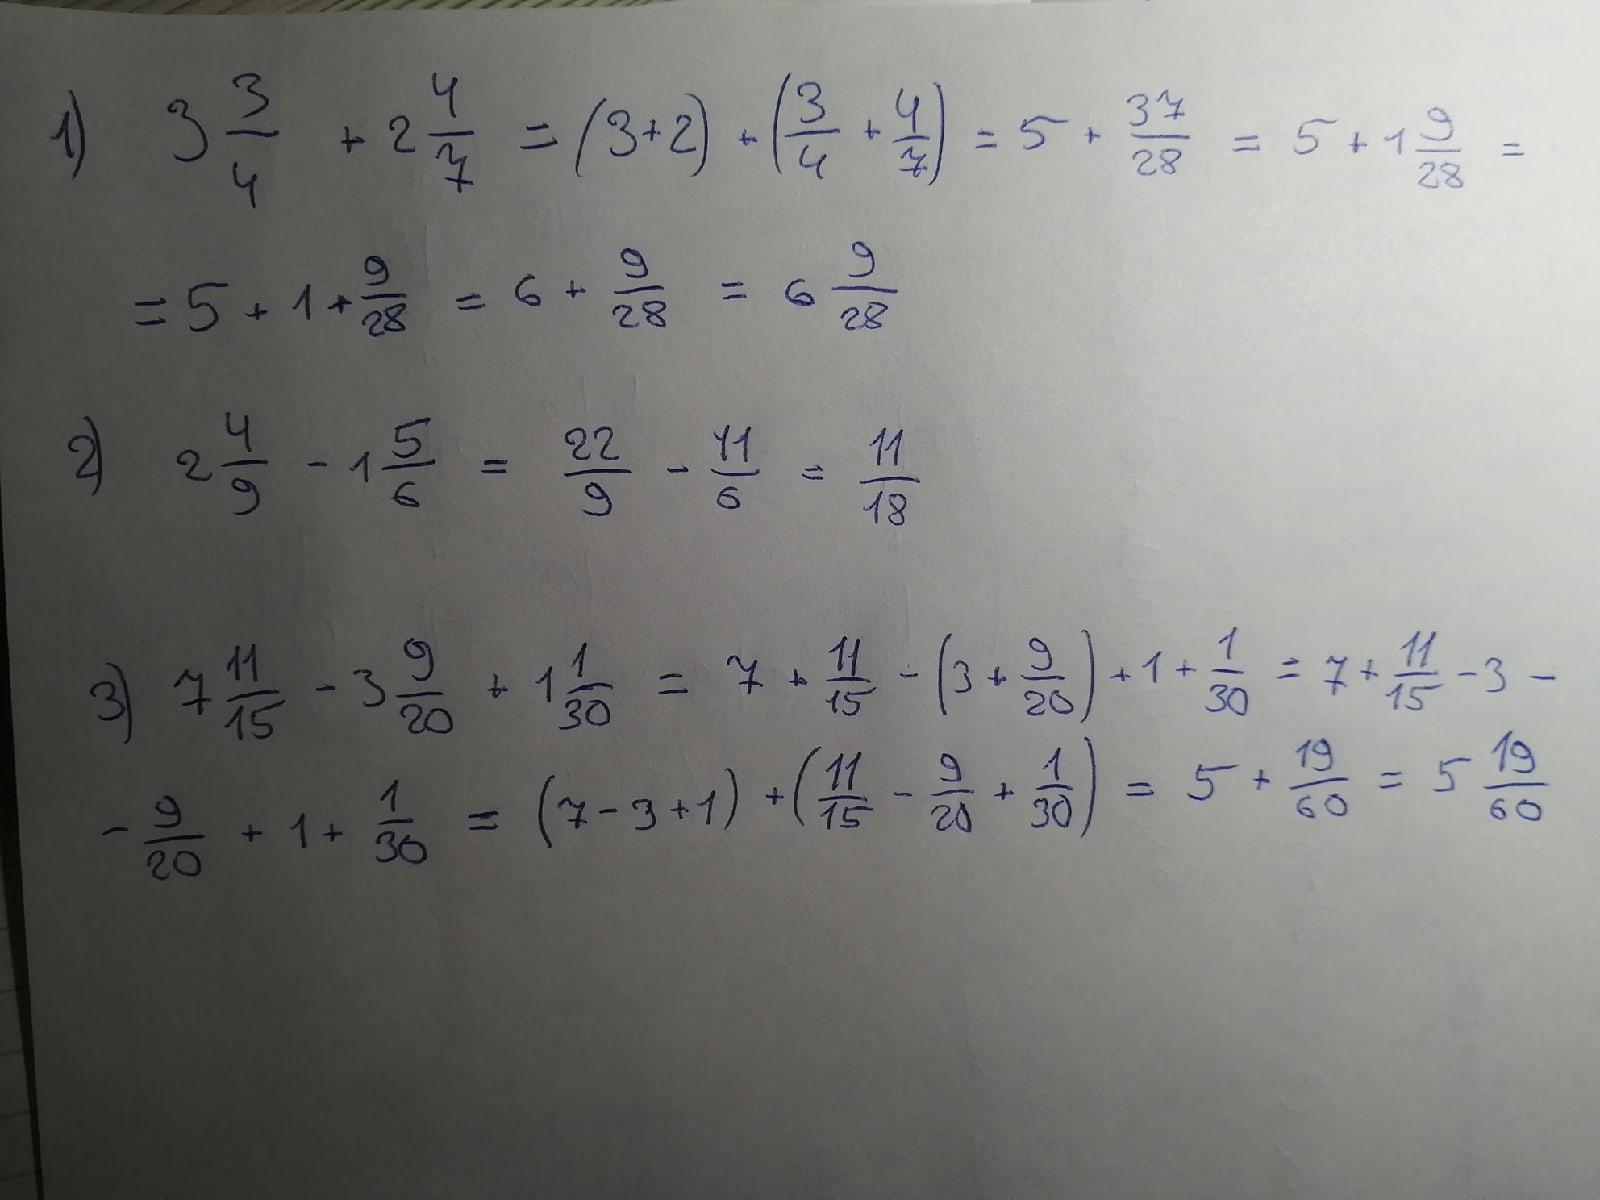 1) 3 3/4 + 2 4/7 = (3+2) + (3/4 + 4/7) = 5 + 37/28 = 5 + 1 9/28 =
= 5 + 1 + 9/28 = 6 + 9/28 = 6 9/28
2) 2 4/9 - 1 5/6 = 22/9 - 11/6 = 11/18
3) 7 11/15 - 3 9/20 + 1 1/30 = 7 + 11/15 - (3 + 9/20) + 1 + 1/30 = 7 + 11/15 - 3 -
- 9/20 + 1 + 1/30 = (7 - 3 + 1) + (11/15 - 9/20 + 1/30) = 5 + 19/60 = 5 19/60